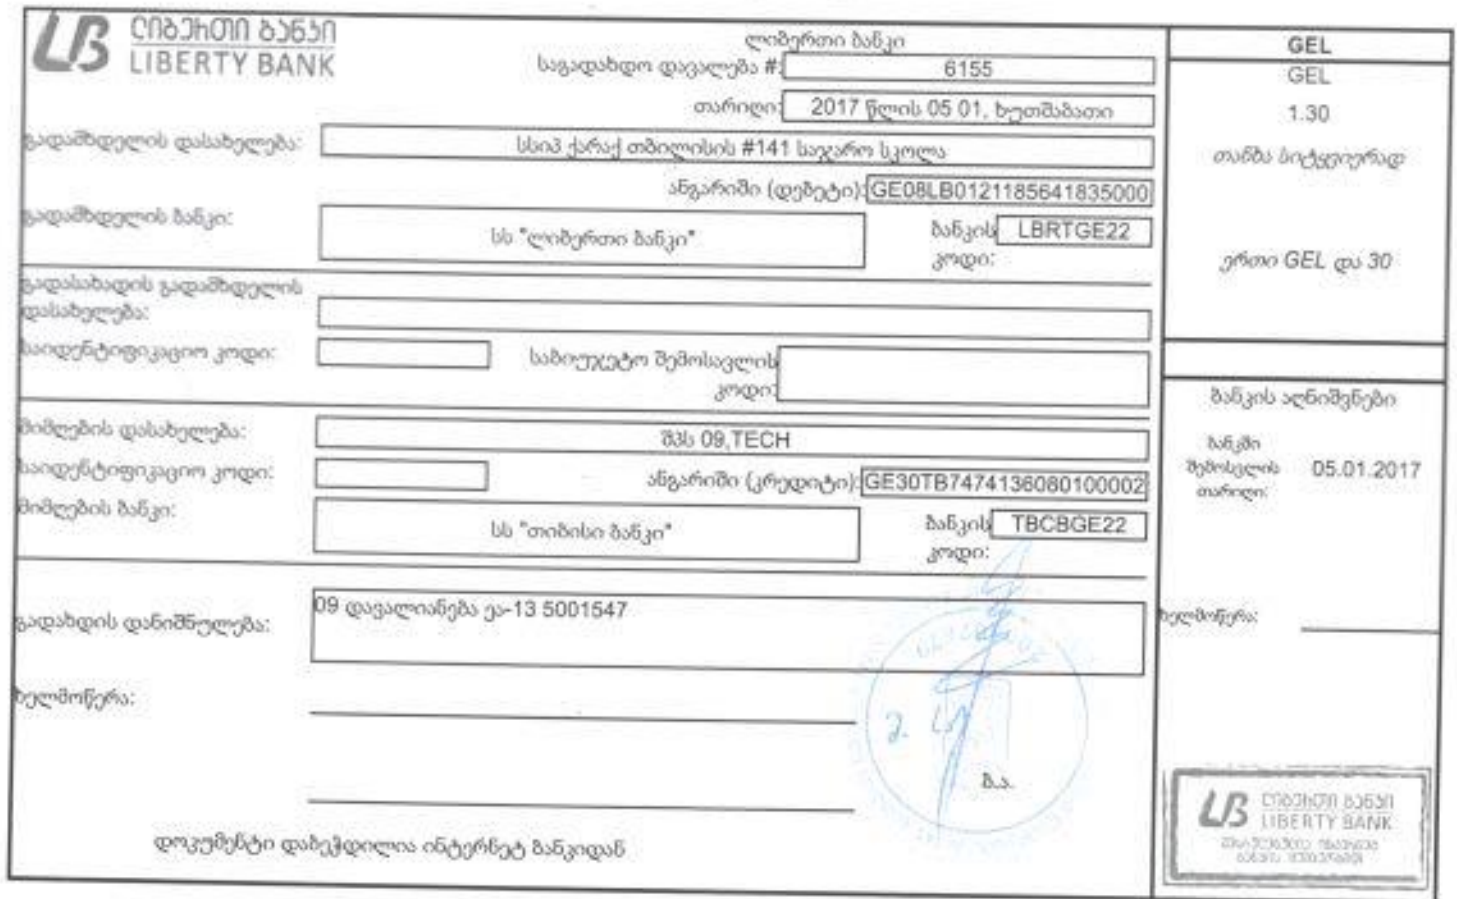 ლიბერთი ბანკი
LIBERTY BANK
ლიბერთი ბანკი
საგადახდო დავალება #: 6155
თარიღი: 2017 წლის 05 01, ხუთშაბათი
გადამხდელის დასახელება: სსიპ ქარაქ თბილისის #141 საჯარო სკოლა
ანგარიში (დებეტი): GE08LB0121185641835000
გადამხდელის ბანკი: სს "ლიბერთი ბანკი" ბანკის კოდი: LBRTGE22
გადასახადის გადამხდელის
დასახელება:
საიდენტიფიკაციო კოდი: საბიუჯეტო შემოსავლის
კოდი:
მიმღების დასახელება: შპს 09,TECH
საიდენტიფიკაციო კოდი: ანგარიში (კრედიტი): GE30TB7474136080100002
მიმღების ბანკი: სს "თიბისი ბანკი" ბანკის კოდი: TBCBGE22
გადახდის დანიშნულება: 09 დავალიანება ეა-13 5001547
ხელმოწერა:
ბ.ა.
დოკუმენტი დაბეჭდილია ინტერნეტ ბანკიდან
GEL
GEL
1.30
თანხა სიტყვიერად
ერთი GEL და 30
ბანკის აღნიშვნები
ბანკში
შემოსვლის 05.01.2017
თარიღი:
ხელმოწერა:
ლიბერთი ბანკი
LIBERTY BANK